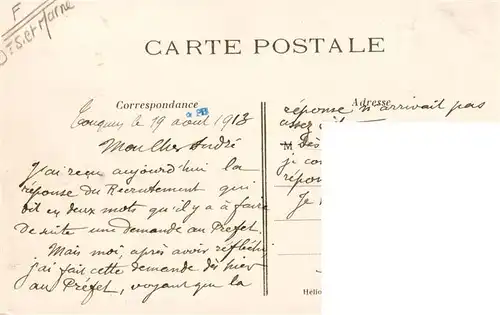 F
S. et Marne
CARTE POSTALE
Correspondance
Adresse
le 19 août 1913
Mon Cher André
J'ai reçu aujourd'hui la
réponse du Recrutement qui
dit en deux mots qu'il y a à faire
de suite une demande au Préfet.
Mais moi, après avoir réfléchi,
j'ai fait cette demande dès hier
au Préfet, voyant que la
réponse n'arrivait pas
assez
M
Dès
je
répon
Je
Hélio